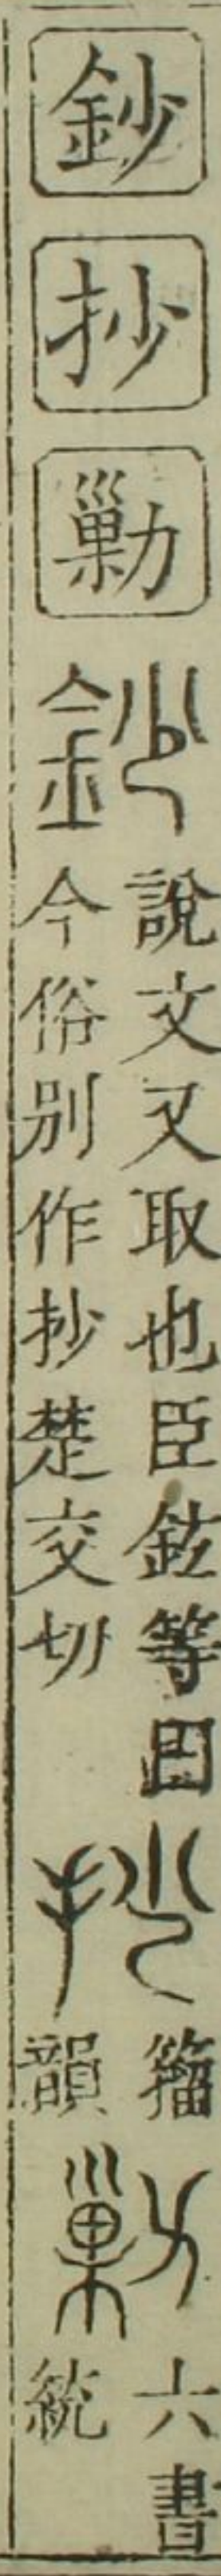 鈔
抄
勦
鈔
說文叉取也臣鉉等曰
今俗別作抄楚交切
抄
籀
韻
勦
六書
統